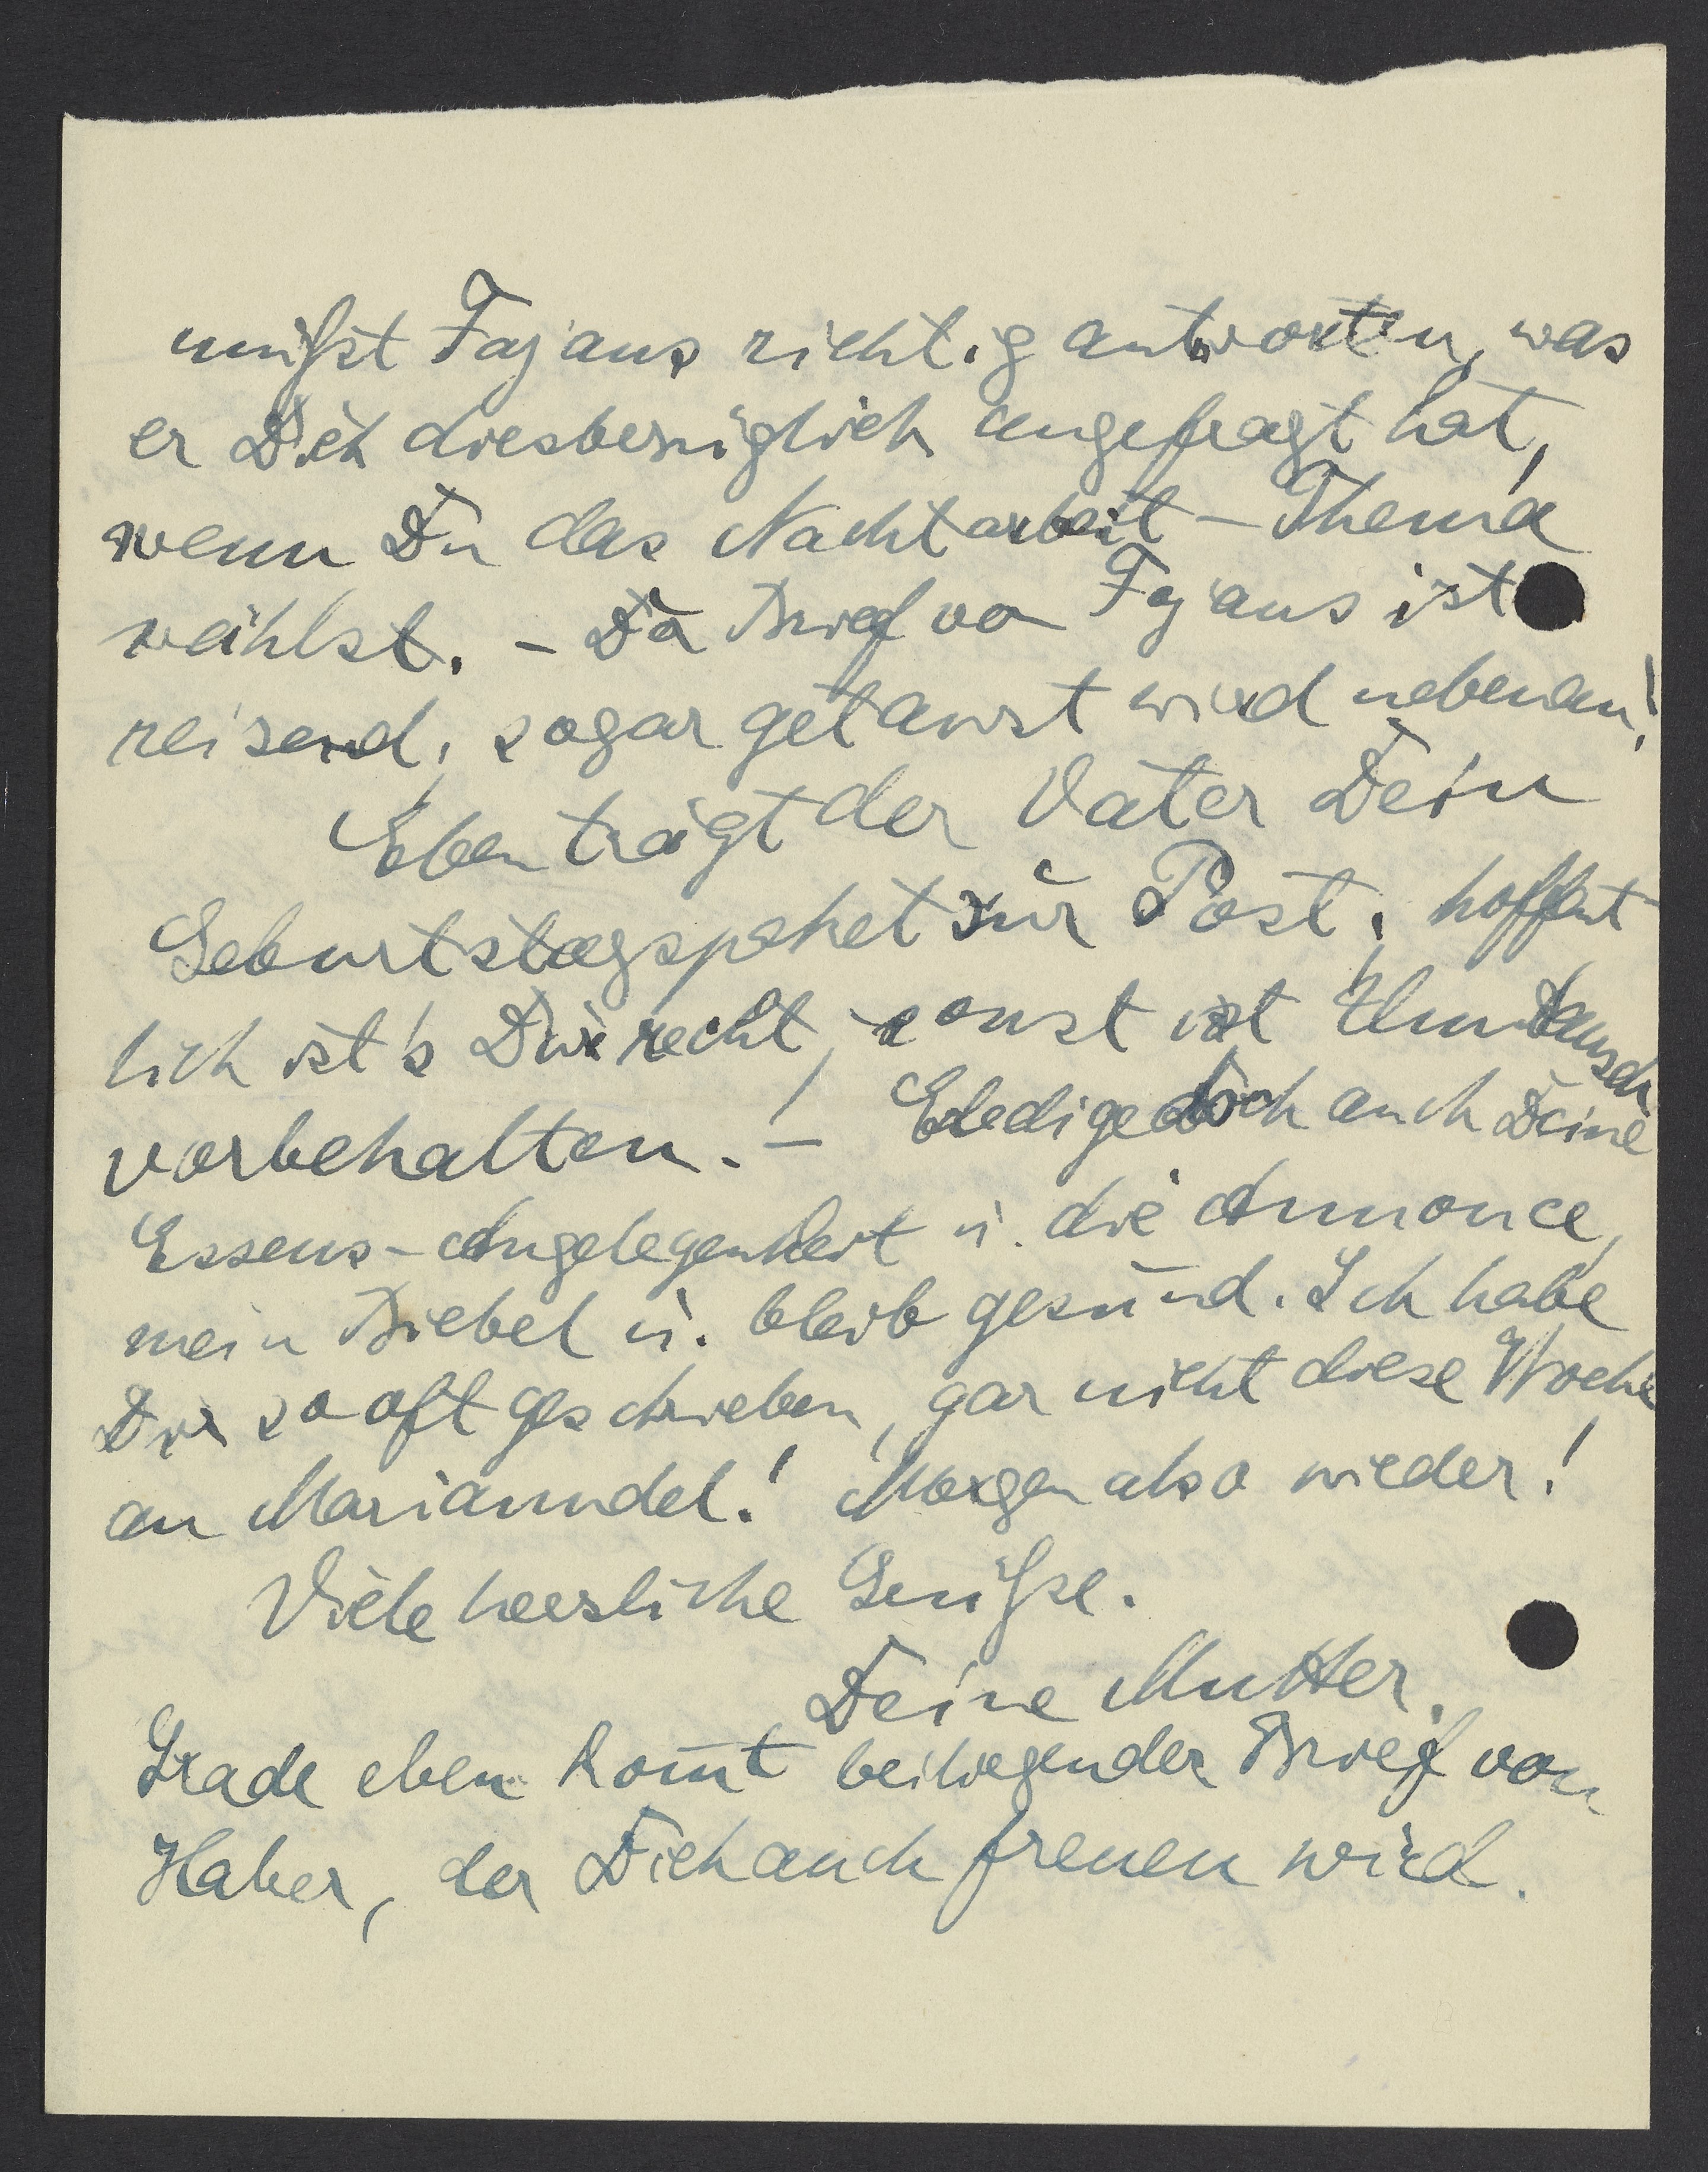 mußt Fajans richtig antworten, was
er Dich diesbezüglich angefragt hat,
wenn Du das Nachtarbeit-Thema
wählst. - Da Brief von Fajans ist
reizend, sogar getanzt wird nebenan!
Eben trägt der Vater Dein
Geburtstagspaket zur Post, hoffent
lich ist's Dir recht, sonst ist Umtausch
vorbehalten. - Erledige doch auch Deine
Essens-Angelegenheit u. die Annonce,
mein Biebel u. bleib gesund. Ich habe
Dir so oft geschrieben, gar nicht diese Woche
an Marianndel! Morgen also wieder!
Viele herzliche Grüße.
Deine Mutter.
Grade eben kom̄t beiliegender Brief von
Haber, der Dich auch freuen wird.